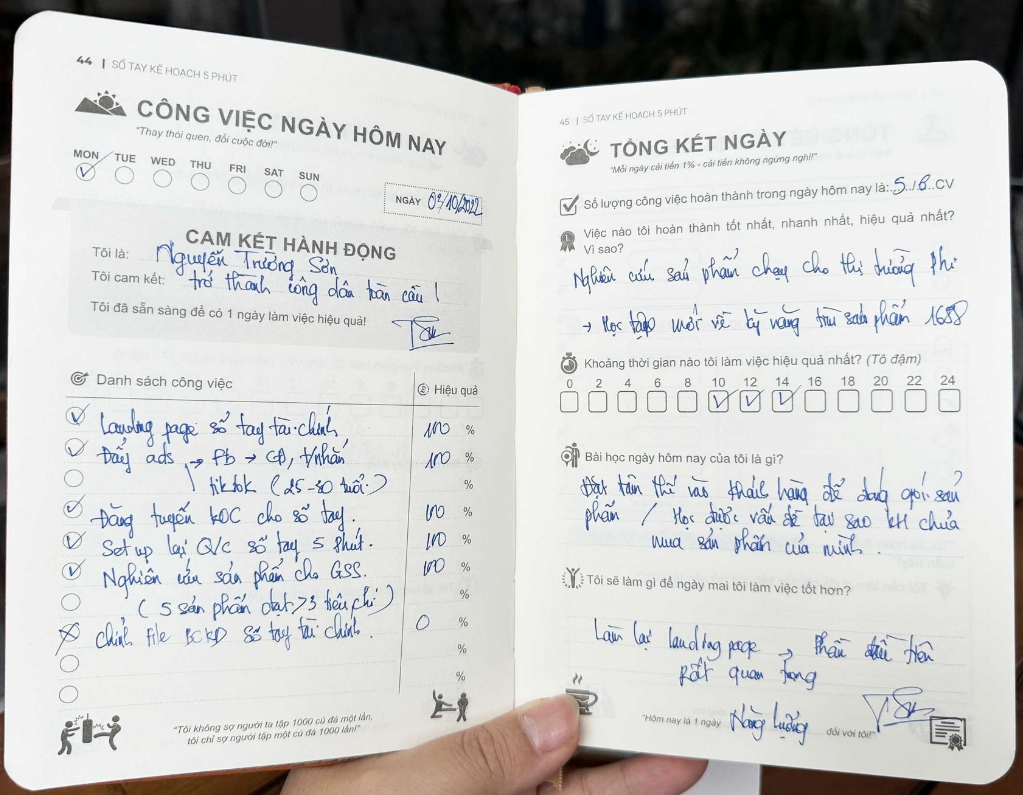 44 | SỔ TAY KẾ HOẠCH 5 PHÚT
CÔNG VIỆC NGÀY HÔM NAY
"Thay thói quen, đổi cuộc đời!"
MON TUE WED THU FRI SAT SUN
NGÀY 03/10/2022
CAM KẾT HÀNH ĐỘNG
Tôi là: Nguyễn Trường Sơn
Tôi cam kết: trở thành công dân toàn cầu!
Tôi đã sẵn sàng để có 1 ngày làm việc hiệu quả!
Danh sách công việc Hiệu quả
Landing page sổ tay tài chính 100 %
Đẩy ads → Fb → CĐ, t/nhắn 100 %
tiktok (25-30 tuổi) %
Đăng tuyển KOC cho sổ tay. 100 %
Set up lại Q/c sổ tay 5 phút. 100 %
Nghiên cứu sản phẩm cho GSS. 100 %
(5 sản phẩm đạt >3 tiêu chí) %
chỉnh File BCKD sổ tay tài chính. 0 %
%
%
"Tôi không sợ người ta tập 1000 cú đá một lần,
tôi chỉ sợ người tập một cú đá 1000 lần!"
45 | SỔ TAY KẾ HOẠCH 5 PHÚT
TỔNG KẾT NGÀY
"Mỗi ngày cải tiến 1% - cải tiến không ngừng nghỉ!"
Số lượng công việc hoàn thành trong ngày hôm nay là: 5/6 CV
Việc nào tôi hoàn thành tốt nhất, nhanh nhất, hiệu quả nhất?
Vì sao?
Nghiên cứu sản phẩm chạy cho thị trường Phi
→ Học tập mới về kỹ năng tìm sản phẩm 1688
Khoảng thời gian nào tôi làm việc hiệu quả nhất? (Tô đậm)
0 2 4 6 8 10 12 14 16 18 20 22 24
Bài học ngày hôm nay của tôi là gì?
Đặt tâm thế vào khách hàng để đóng gói sản
phẩm / Học được vấn đề tại sao KH chưa
mua sản phẩm của mình.
Tôi sẽ làm gì để ngày mai tôi làm việc tốt hơn?
Làm lại landing page → Phần đầu tiên
Rất quan trọng
"Hôm nay là 1 ngày Năng lượng đối với tôi!"